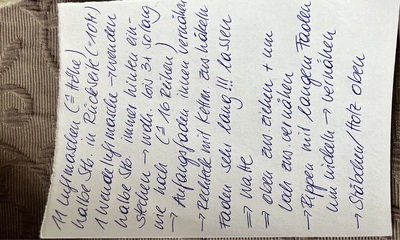 11 Luftmaschen (≙ Höhe)
halbe Stb. in Rückreihe (→10H)
1 Wendeluftmasche → wenden
halbe Stb. immer hinten ein-
stechen → wdh. bis 3x so lang
wie hoch (≙ 16 Reihen)
→ Anfangsfaden innen vernähen
→ Rechteck mit Ketten zus. häkeln
Faden sehr lang!!! lassen
⇒ Watte
⇒ oben zus. ziehen + um
Loch zus. vernähen
→ Rippen mit langem Faden
umwickeln → vernähen
→ Stäbchen/Holz oben